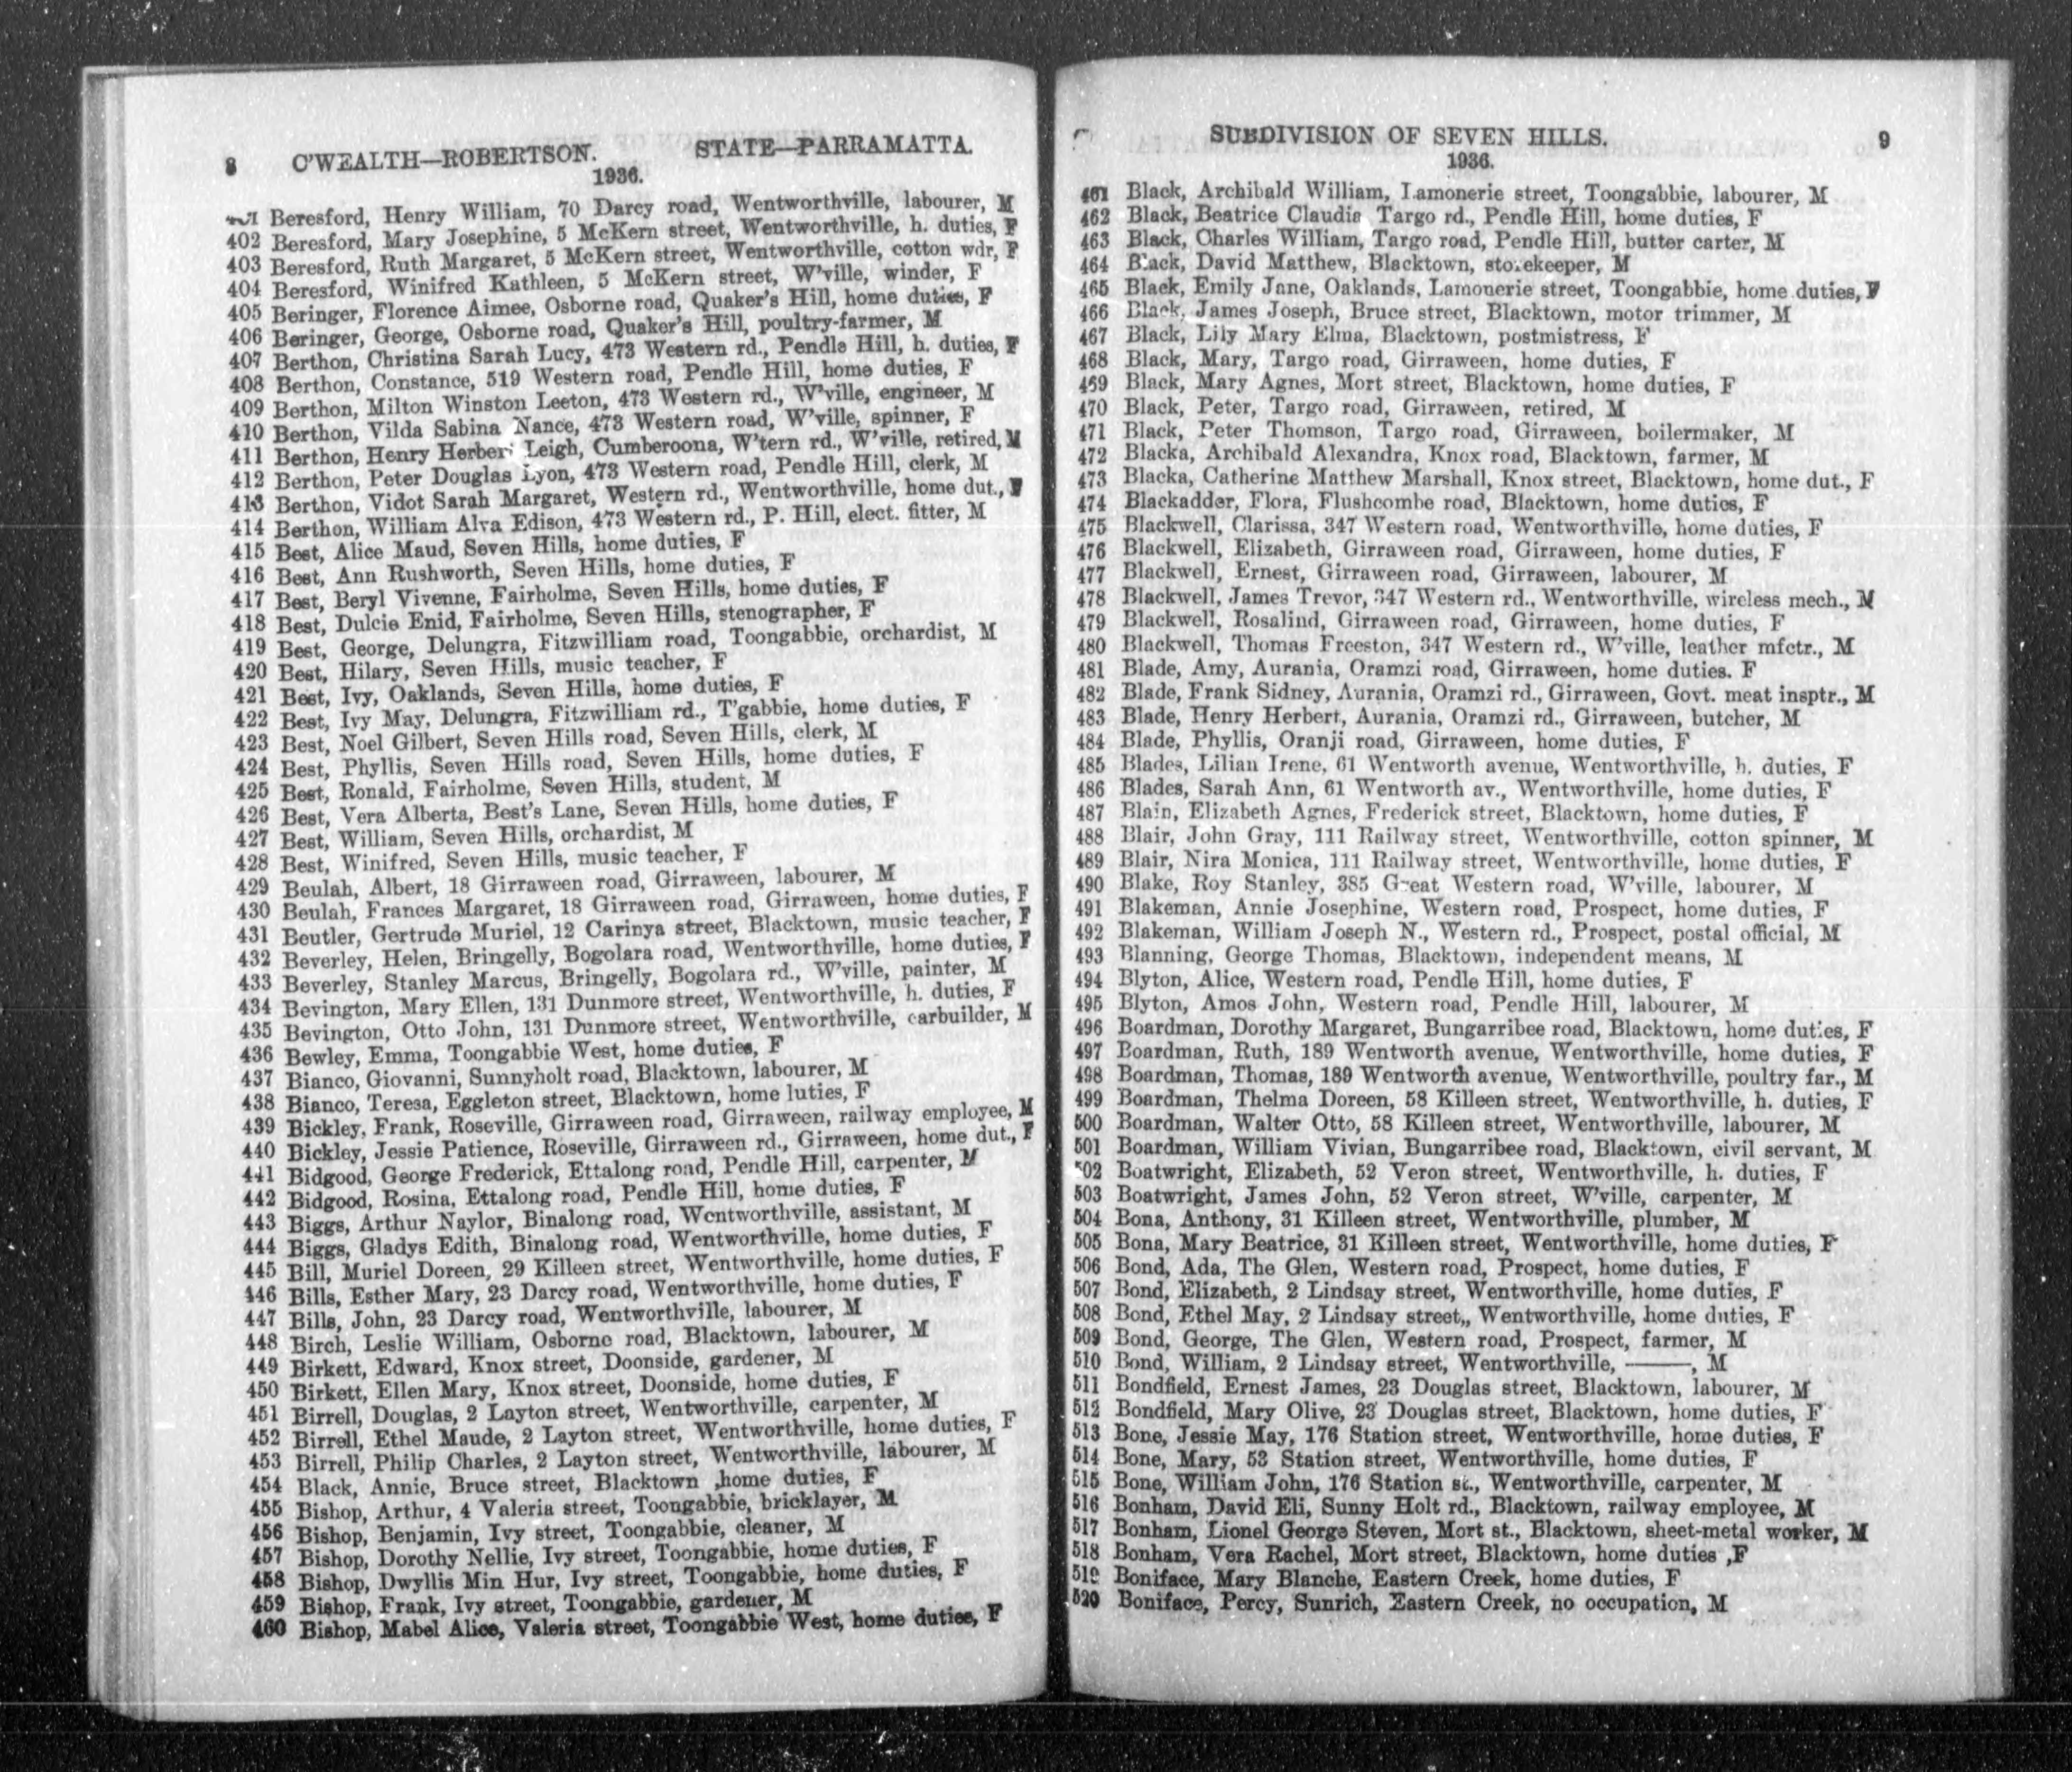 8 C'WEALTH—ROBERTSON. STATE—PARRAMATTA.
1936.
Beresford, Henry William, 70 Darcy road, Wentworthville, labourer, M
402 Beresford, Mary Josephine, 5 McKern street, Wentworthville, h. duties, F
403 Beresford, Ruth Margaret, 5 McKern street, Wentworthville, cotton wdr, F
404 Beresford, Winifred Kathleen, 5 McKern street, W'ville, winder, F
405 Beringer, Florence Aimee, Osborne road, Quaker's Hill, home duties, F
406 Beringer, George, Osborne road, Quaker's Hill, poultry-farmer, M
407 Berthon, Christina Sarah Lucy, 473 Western rd., Pendle Hill, h. duties, F
408 Berthon, Constance, 519 Western road, Pendle Hill, home duties, F
409 Berthon, Milton Winston Leeton, 473 Western rd., W'ville, engineer, M
410 Berthon, Vilda Sabina Nance, 473 Western road, W'ville, spinner, F
411 Berthon, Henry Herbert Leigh, Cumberoona, W'tern rd., W'ville, retired, M
412 Berthon, Peter Douglas Lyon, 473 Western road, Pendle Hill, clerk, M
413 Berthon, Vidot Sarah Margaret, Western rd., Wentworthville, home dut., F
414 Berthon, William Alva Edison, 473 Western rd., P. Hill, elect. fitter, M
415 Best, Alice Maud, Seven Hills, home duties, F
416 Best, Ann Rushworth, Seven Hills, home duties, F
417 Best, Beryl Vivenne, Fairholme, Seven Hills, home duties, F
418 Best, Dulcie Enid, Fairholme, Seven Hills, stenographer, F
419 Best, George, Delungra, Fitzwilliam road, Toongabbie, orchardist, M
420 Best, Hilary, Seven Hills, music teacher, F
421 Best, Ivy, Oaklands, Seven Hills, home duties, F
422 Best, Ivy May, Delungra, Fitzwilliam rd., T'gabbie, home duties, F
423 Best, Noel Gilbert, Seven Hills road, Seven Hills, clerk, M
424 Best, Phyllis, Seven Hills road, Seven Hills, home duties, F
425 Best, Ronald, Fairholme, Seven Hills, student, M
426 Best, Vera Alberta, Best's Lane, Seven Hills, home duties, F
427 Best, William, Seven Hills, orchardist, M
428 Best, Winifred, Seven Hills, music teacher, F
429 Beulah, Albert, 18 Girraween road, Girraween, labourer, M
430 Beulah, Frances Margaret, 18 Girraween road, Girraween, home duties, F
431 Beutler, Gertrude Muriel, 12 Carinya street, Blacktown, music teacher, F
432 Beverley, Helen, Bringelly, Bogolara road, Wentworthville, home duties, F
433 Beverley, Stanley Marcus, Bringelly, Bogolara rd., W'ville, painter, M
434 Bevington, Mary Ellen, 131 Dunmore street, Wentworthville, h. duties, F
435 Bevington, Otto John, 131 Dunmore street, Wentworthville, carbuilder, M
436 Bewley, Emma, Toongabbie West, home duties, F
437 Bianco, Giovanni, Sunnyholt road, Blacktown, labourer, M
438 Bianco, Teresa, Eggleton street, Blacktown, home luties, F
439 Bickley, Frank, Roseville, Girraween road, Girraween, railway employee, M
440 Bickley, Jessie Patience, Roseville, Girraween rd., Girraween, home dut., F
441 Bidgood, George Frederick, Ettalong road, Pendle Hill, carpenter, M
442 Bidgood, Rosina, Ettalong road, Pendle Hill, home duties, F
443 Biggs, Arthur Naylor, Binalong road, Wentworthville, assistant, M
444 Biggs, Gladys Edith, Binalong road, Wentworthville, home duties, F
445 Bill, Muriel Doreen, 29 Killeen street, Wentworthville, home duties, F
446 Bills, Esther Mary, 23 Darcy road, Wentworthville, home duties, F
447 Bills, John, 23 Darcy road, Wentworthville, labourer, M
448 Birch, Leslie William, Osborne road, Blacktown, labourer, M
449 Birkett, Edward, Knox street, Doonside, gardener, M
450 Birkett, Ellen Mary, Knox street, Doonside, home duties, F
451 Birrell, Douglas, 2 Layton street, Wentworthville, carpenter, M
452 Birrell, Ethel Maude, 2 Layton street, Wentworthville, home duties, F
453 Birrell, Philip Charles, 2 Layton street, Wentworthville, labourer, M
454 Black, Annie, Bruce street, Blacktown ,home duties, F
455 Bishop, Arthur, 4 Valeria street, Toongabbie, bricklayer, M
456 Bishop, Benjamin, Ivy street, Toongabbie, cleaner, M
457 Bishop, Dorothy Nellie, Ivy street, Toongabbie, home duties, F
458 Bishop, Dwyllis Min Hur, Ivy street, Toongabbie, home duties, F
459 Bishop, Frank, Ivy street, Toongabbie, gardener, M
460 Bishop, Mabel Alice, Valeria street, Toongabbie West, home duties, F
SUBDIVISION OF SEVEN HILLS. 9
1936.
461 Black, Archibald William, Lamonerie street, Toongabbie, labourer, M
462 Black, Beatrice Claudia Targo rd., Pendle Hill, home duties, F
463 Black, Charles William, Targo road, Pendle Hill, butter carter, M
464 Black, David Matthew, Blacktown, storekeeper, M
465 Black, Emily Jane, Oaklands, Lamonerie street, Toongabbie, home duties, F
466 Black, James Joseph, Bruce street, Blacktown, motor trimmer, M
467 Black, Lily Mary Elma, Blacktown, postmistress, F
468 Black, Mary, Targo road, Girraween, home duties, F
469 Black, Mary Agnes, Mort street, Blacktown, home duties, F
470 Black, Peter, Targo road, Girraween, retired, M
471 Black, Peter Thomson, Targo road, Girraween, boilermaker, M
472 Blacka, Archibald Alexandra, Knox road, Blacktown, farmer, M
473 Blacka, Catherine Matthew Marshall, Knox street, Blacktown, home dut., F
474 Blackadder, Flora, Flushcombe road, Blacktown, home duties, F
475 Blackwell, Clarissa, 347 Western road, Wentworthville, home duties, F
476 Blackwell, Elizabeth, Girraween road, Girraween, home duties, F
477 Blackwell, Ernest, Girraween road, Girraween, labourer, M
478 Blackwell, James Trevor, 347 Western rd., Wentworthville, wireless mech., M
479 Blackwell, Rosalind, Girraween road, Girraween, home duties, F
480 Blackwell, Thomas Freeston, 347 Western rd., W'ville, leather mfctr., M
481 Blade, Amy, Aurania, Oramzi road, Girraween, home duties. F
482 Blade, Frank Sidney, Aurania, Oramzi rd., Girraween, Govt. meat insptr., M
483 Blade, Henry Herbert, Aurania, Oramzi rd., Girraween, butcher, M
484 Blade, Phyllis, Oranji road, Girraween, home duties, F
485 Blades, Lilian Irene, 61 Wentworth avenue, Wentworthville, h. duties, F
486 Blades, Sarah Ann, 61 Wentworth av., Wentworthville, home duties, F
487 Blain, Elizabeth Agnes, Frederick street, Blacktown, home duties, F
488 Blair, John Gray, 111 Railway street, Wentworthville, cotton spinner, M
489 Blair, Nira Monica, 111 Railway street, Wentworthville, home duties, F
490 Blake, Roy Stanley, 385 Great Western road, W'ville, labourer, M
491 Blakeman, Annie Josephine, Western road, Prospect, home duties, F
492 Blakeman, William Joseph N., Western rd., Prospect, postal official, M
493 Blanning, George Thomas, Blacktown, independent means, M
494 Blyton, Alice, Western road, Pendle Hill, home duties, F
495 Blyton, Amos John, Western road, Pendle Hill, labourer, M
496 Boardman, Dorothy Margaret, Bungarribee road, Blacktown, home duties, F
497 Boardman, Ruth, 189 Wentworth avenue, Wentworthville, home duties, F
498 Boardman, Thomas, 189 Wentworth avenue, Wentworthville, poultry far., M
499 Boardman, Thelma Doreen, 58 Killeen street, Wentworthville, h. duties, F
500 Boardman, Walter Otto, 58 Killeen street, Wentworthville, labourer, M
501 Boardman, William Vivian, Bungarribee road, Blacktown, civil servant, M
502 Boatwright, Elizabeth, 52 Veron street, Wentworthville, h. duties, F
503 Boatwright, James John, 52 Veron street, W'ville, carpenter, M
504 Bona, Anthony, 31 Killeen street, Wentworthville, plumber, M
505 Bona, Mary Beatrice, 31 Killeen street, Wentworthville, home duties, F
506 Bond, Ada, The Glen, Western road, Prospect, home duties, F
507 Bond, Elizabeth, 2 Lindsay street, Wentworthville, home duties, F
508 Bond, Ethel May, 2 Lindsay street,, Wentworthville, home duties, F
509 Bond, George, The Glen, Western road, Prospect, farmer, M
510 Bond, William, 2 Lindsay street, Wentworthville, ———, M
511 Bondfield, Ernest James, 23 Douglas street, Blacktown, labourer, M
512 Bondfield, Mary Olive, 23 Douglas street, Blacktown, home duties, F
513 Bone, Jessie May, 176 Station street, Wentworthville, home duties, F
514 Bone, Mary, 53 Station street, Wentworthville, home duties, F
515 Bone, William John, 176 Station st., Wentworthville, carpenter, M
516 Bonham, David Eli, Sunny Holt rd., Blacktown, railway employee, M
517 Bonham, Lionel George Steven, Mort st., Blacktown, sheet-metal worker, M
518 Bonham, Vera Rachel, Mort street, Blacktown, home duties ,F
519 Boniface, Mary Blanche, Eastern Creek, home duties, F
520 Boniface, Percy, Sunrich, Eastern Creek, no occupation, M